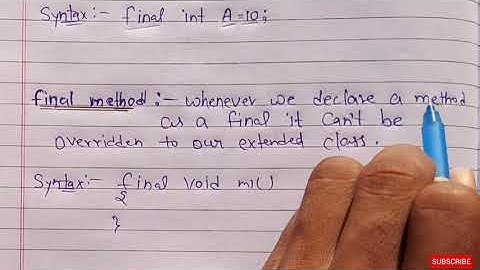 Syntax:- final int A=10;
final method :- whenever we declare a method
as a final it can't be
overridden to our extended class.
Syntax:- final void m1()
{
}
SUBSCRIBE